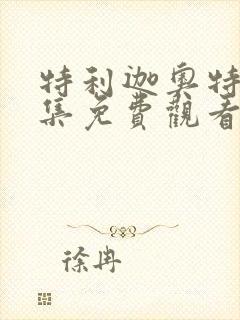 特利迦奥特
集免費觀看
徐冉